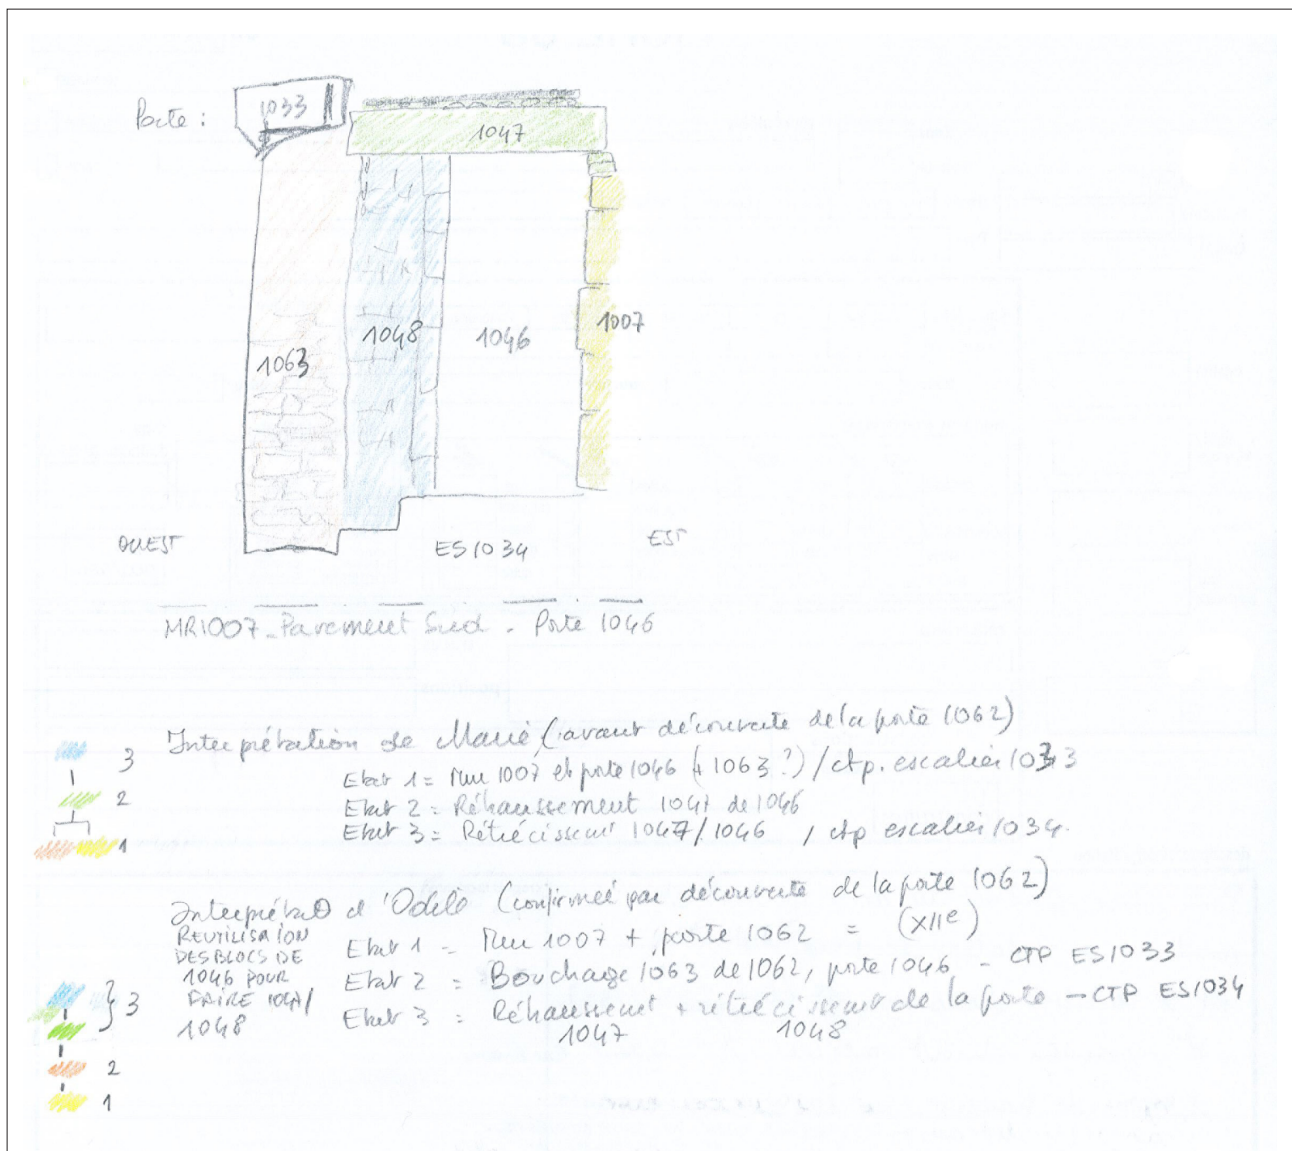 Porte :
1033
1047
1063
1048
1046
1007
OUEST
ES1034
EST
MR1007_Parement Sud - Porte 1046
Interprétation de Marie (avant découverte de la porte 1062)
3
Etat 1 = Mur 1007 et porte 1046 (+ 1063 ?) / ctp. escalier 1033
2
Etat 2 = Réhaussement 1047 de 1046
Etat 3 = Rétrécissement 1047/1046 , ctp escalier 1034.
1
(confirmée par découverte de la porte 1062)
REUTILISATION
DES BLOCS DE
1046 POUR
FAIRE 1047/
1048
Etat 1 = Mur 1007 + porte 1062 = (XIIe)
Etat 2 = Bouchage 1063 de 1062, porte 1046 - CTP ES1033
3
Etat 3 = Réhaussement + rétrécissement de la porte - CTP ES1034
1047 1048
2
1